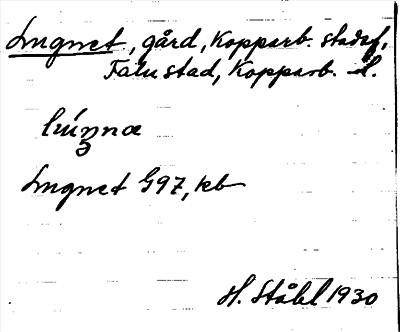 Lugnet, gård, Kopparb. stadsf.,
Falu stad, Kopparb. l.
Lugnet G97, kb
H. Ståhl 1930